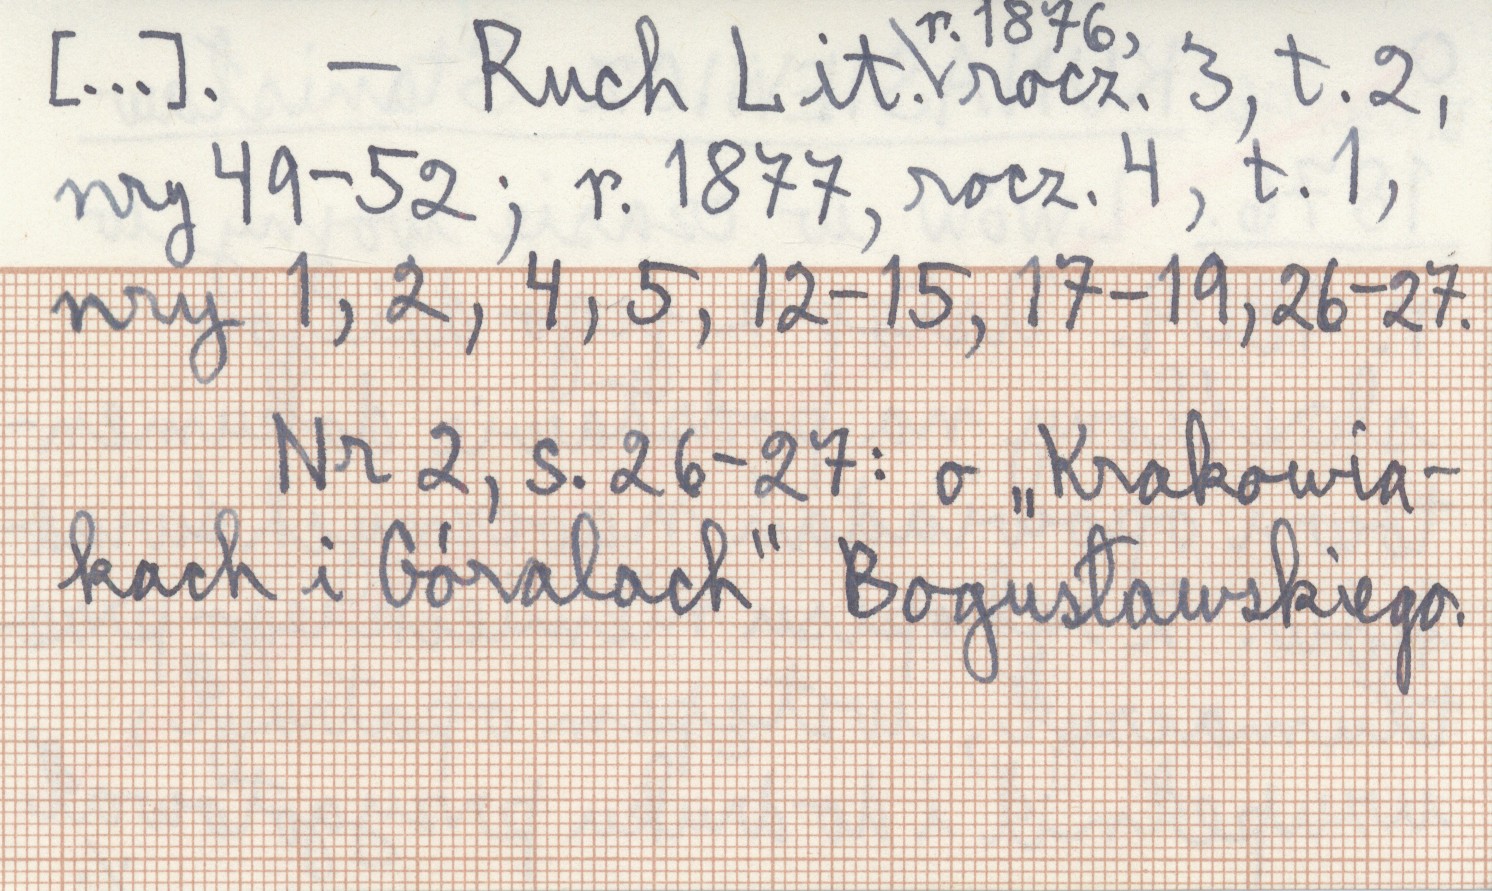 [...]. — Ruch Lit. r. 1876, rocz. 3, t. 2,
nry 49-52; r. 1877, rocz. 4, t. 1,
nry 1, 2, 4, 5, 12-15, 17-19, 26-27.
Nr 2, s. 26-27: o „Krakowia-
kach i Góralach" Bogusławskiego.